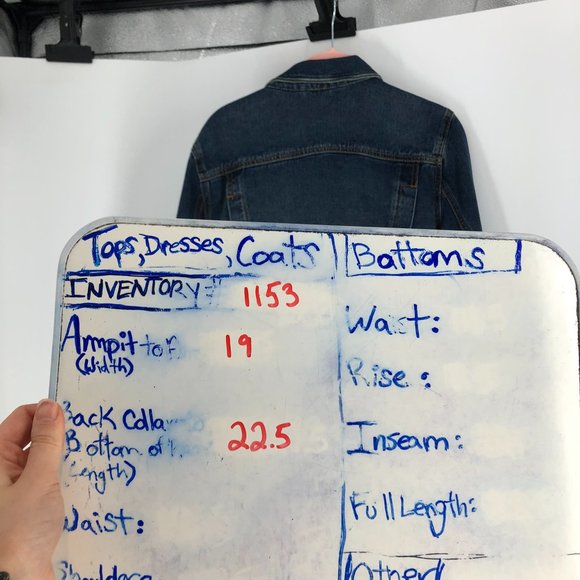 Tops, Dresses, Coats
INVENTORY# 1153
Armpit to 19
(Width)
Back Colla
Bottom of 22.5
(Length)
Waist:
Shoulders
Bottoms
Waist:
Rise:
Inseam:
Full Length:
Other